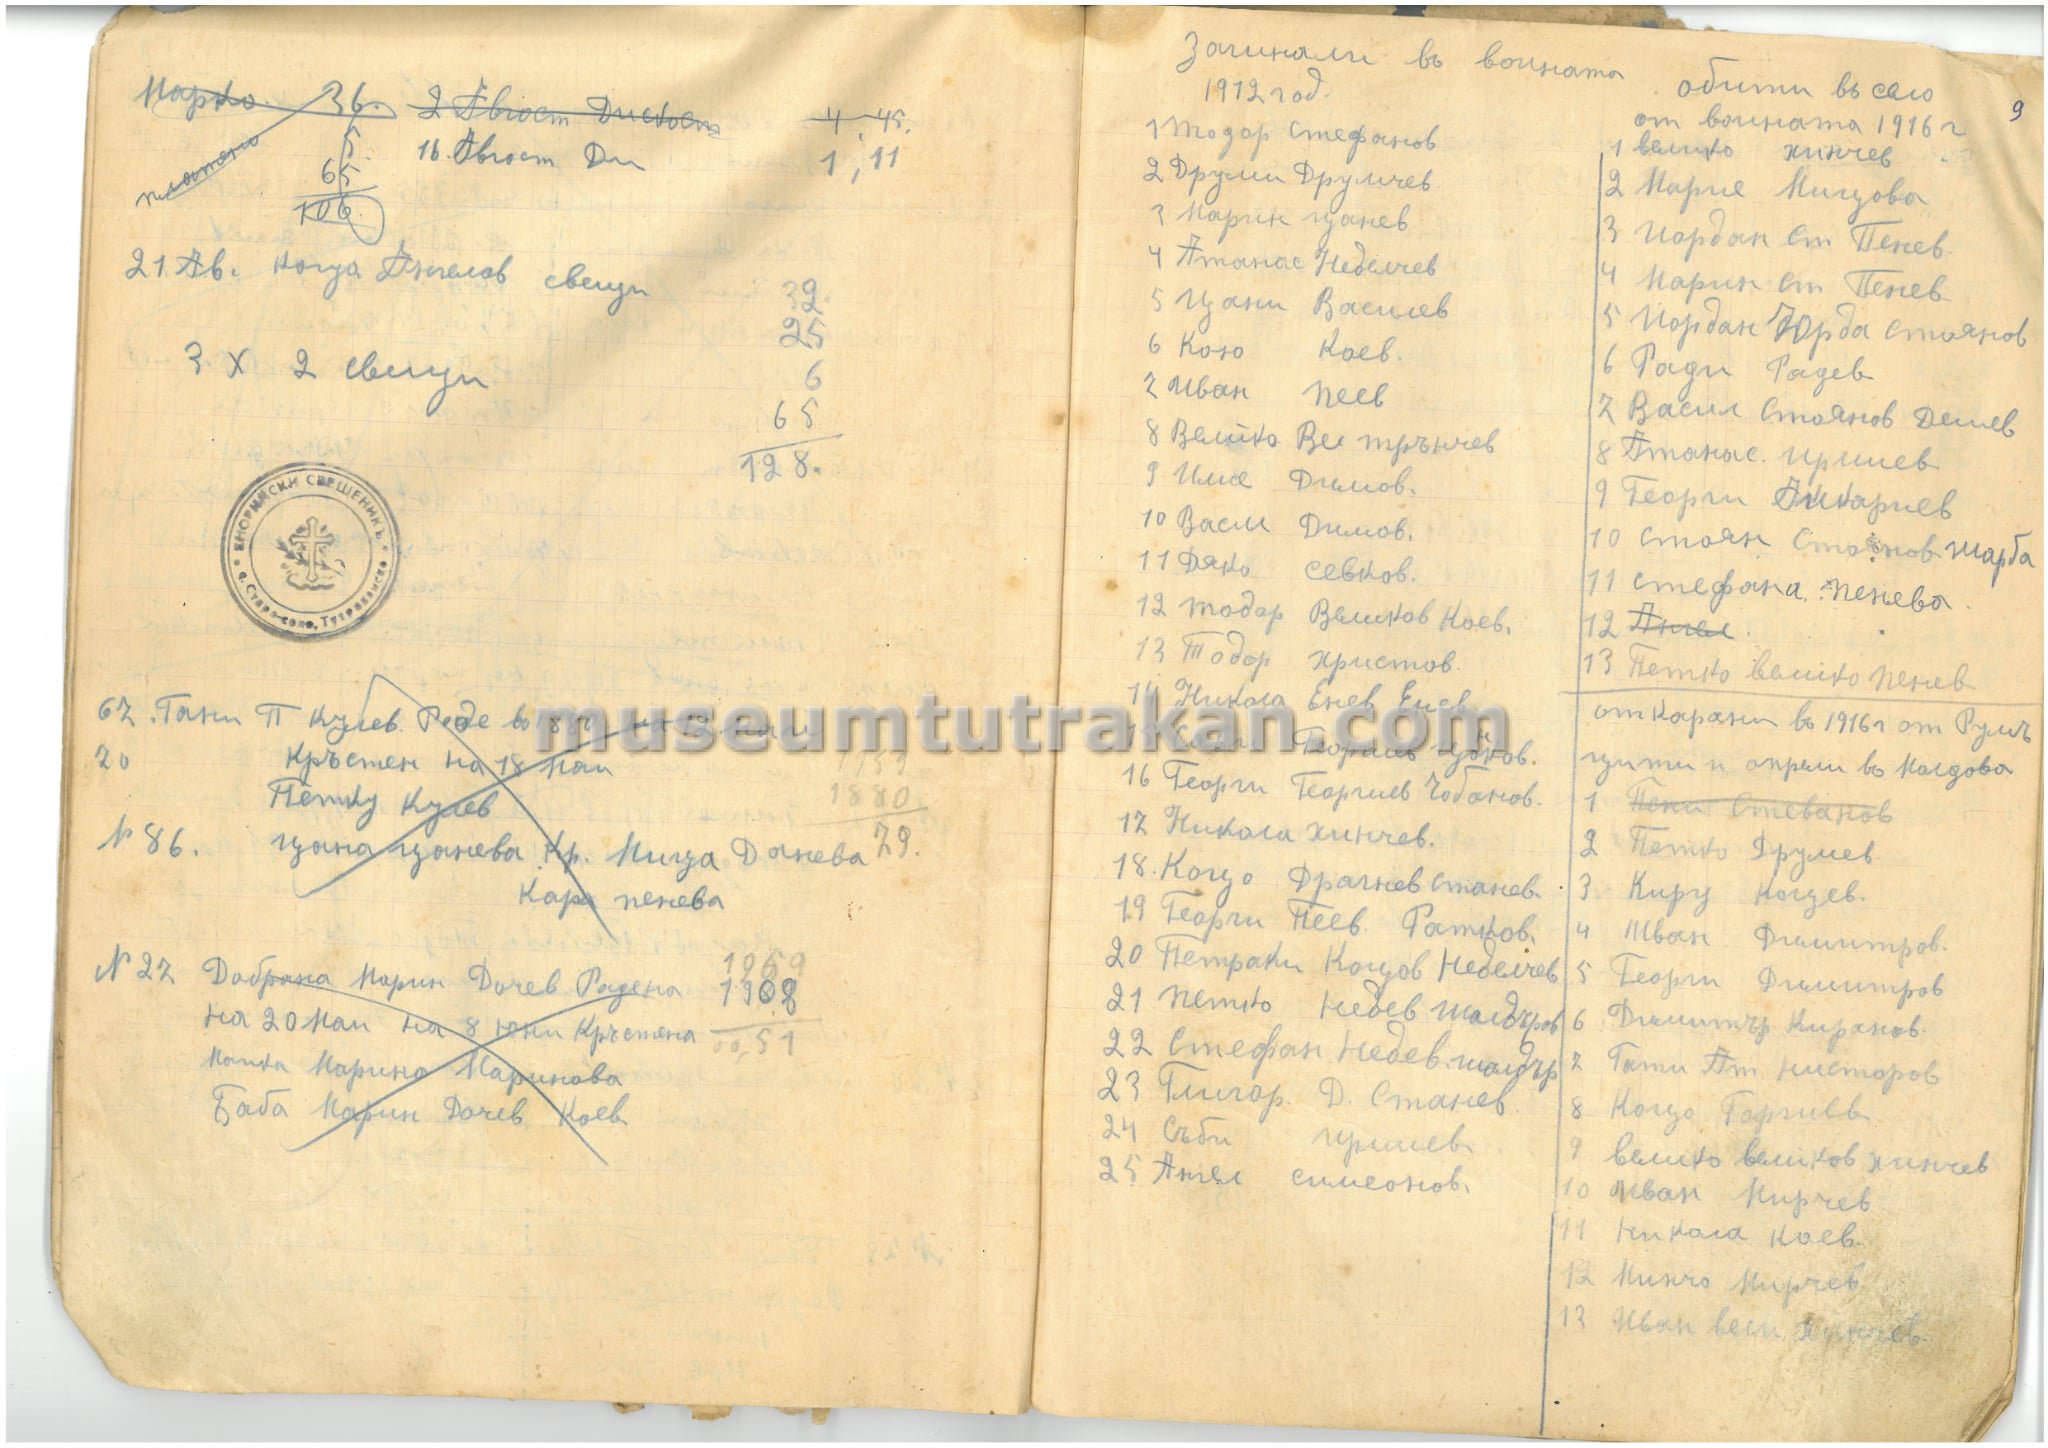 Марко 36. 2 Август Дискост 4.45.
платено 5. 16. Август Ди 1,11
65
106
21 Ав. Когца Ангелов свещи 32
25
3 х 2 свещи 6
65
128.
ЕНОРИЙСКИ СВЕЩЕНИКЪ
с. Старо-село, Тутраканско
67. Гани П Кулев. Роде
20 Кръстен на 18 Маи
Петку Кулев 1880
№ 86. цона цонева Кр. Мица Донева 79.
Кара пенева
№ 27 Добрана Марин Дочев Радена 1959
на 20 Маи на 8 юни Кръстена 1908
маика Марина Маринова 00,51
Баба Марин Дочев Коев
museumtutrakan.com
9
Загинали въ воината
1912 год.
1 тодор Стефанов
2 Друми Друмчев.
3 Марин цонев
4 Атанас Неделчев
5 Цани Василев
6 Кою Коев.
7 Иван пеев
8 Велико Вел трънчев
9 Илие Димов.
10 Васил Димов.
11 Дяко севков.
12 тодор Великов Коев.
13 Тодор христов.
14 Никола Енев Енев
Георгиев цонков.
16 Георги Георгиев Чобанов.
17 Никола хинчев.
18. Когцо Драгнев Станев.
19 Георги Пеев. Ратков.
20 Петраки Когцов Неделчев
21 петко Недев шолдъров
22 Стефан Недев шолдър
23 Глигор. Д. Станев.
24 Съби иришев
25 Ангел симеонов.
обити въ село
от воината 1916 г
1 велико хинчев
2 Марие Мицова
3 Иордан Ст Пенев
4 Марин Ст Пенев
5 Иордан Юрда стоянов
6 Ради Радев
7 Васил Стоянов Делев
8 Атанас. Иришев
9 Георги Аткариев
10 стоян Стоянов шарба
11 стефана. пенева.
12 Ангел.
13 Петко велико пенев
откарани въ 1916 г от Румъ
цити и опрели во Молдова
1 Пени Стеванов
2 Петко Друмев
3 Киру Когцев.
4 Иван Димитров.
5 Георги Димитров
6 Димитър Киранов.
7 Гати Ат нисторов
8 Когцо Горгиев
9 велико великов хинчев
10 Иван Мирчев
11 Никола Коев.
12 Минчо Мирчев
13 Иван вели хинчев.